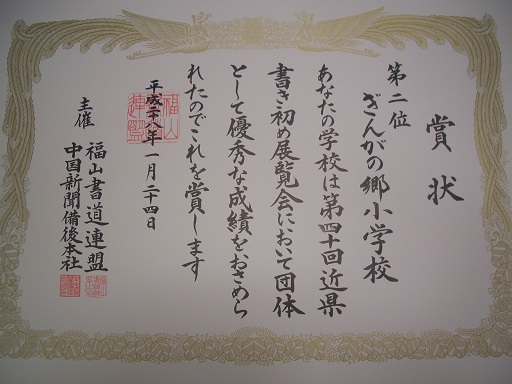 賞状
第二位
ぎんがの郷小学校
あなたの学校は第四十回近県
書き初め展覧会において団体
として優秀な成績をおさめら
れたのでこれを賞します
平成二十八年一月二十四日
主催
福山書道連盟
中国新聞備後本社